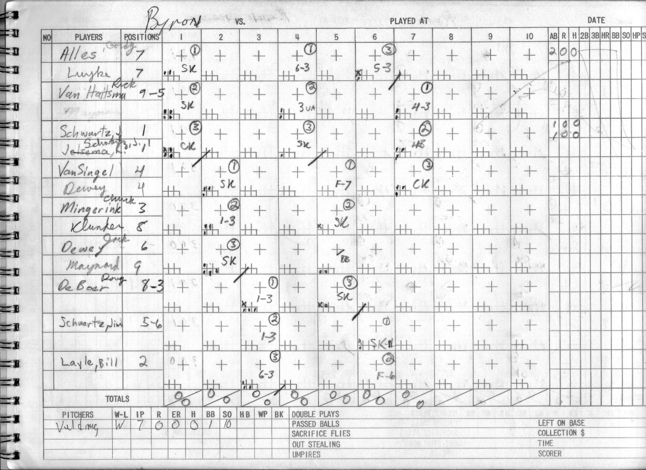 Byron VS. PLAYED AT DATE
NO PLAYERS POSITIONS 1 2 3 4 5 6 7 8 9 10 AB R H 2B 3B HR BB SO HP S
Alles, 7 ① ① ③ 2 0 0
SK 6-3 5-3
Luyke 7
Rick
Van Haitsma 9-5 ② ② ①
SK 3UA 4-3
Schwartz, J 1 ③ ③ ② 1 0 0
CK SK 1 0 0
VanSingel 4 ① ① ③
SK F-7 CK
Dewey 4
Chuck
Mingerink 3 ② ②
1-3 SK
Klunder 8
Jack
Dewey 6 ③
SK BB
Maynard 9
Doug
DeBoer 8-3 ① ③
1-3 SK
Schwartz, Jim 5-6 ② ①
1-3
Layle, Bill 2 ③ ②
6-3 F-6
TOTALS 0 0 0 0 0 0 0 0 0 0 0 0 0 0
PITCHERS W-L IP R ER H BB SO HB WP BK DOUBLE PLAYS
W 7 0 0 0 1 10 PASSED BALLS LEFT ON BASE
SACRIFICE FLIES COLLECTION $
OUT STEALING TIME
UMPIRES SCORER